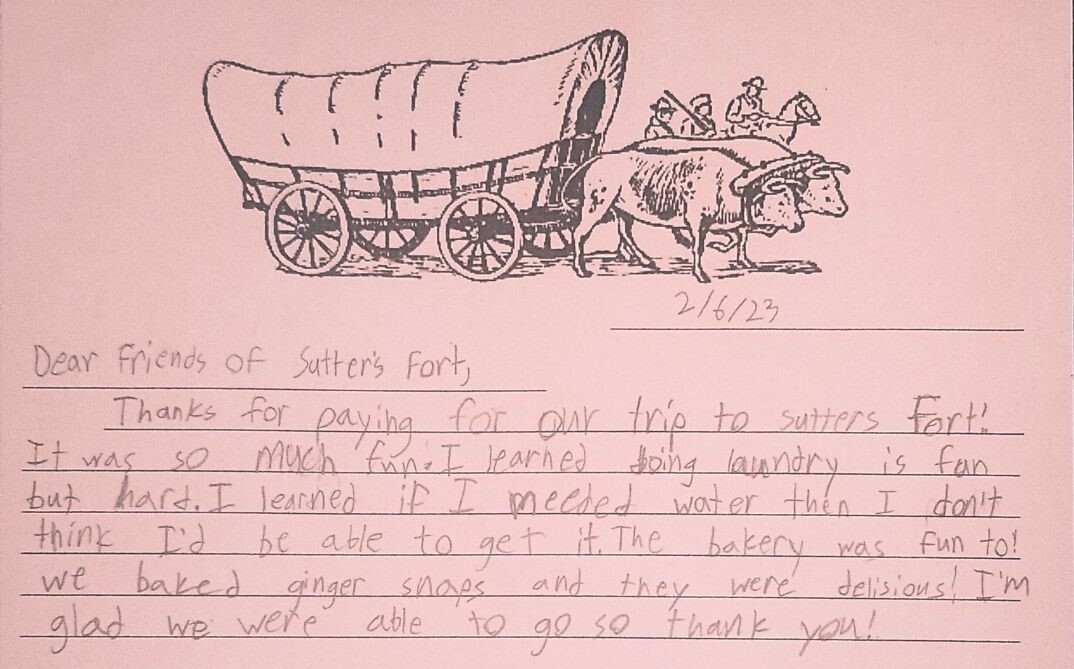 2/6/23
Dear Friends of Sutter's Fort,
Thanks for paying for our trip to sutters Fort!
It was so much fun. I learned doing laundry is fun
but hard. I learned if I meeded water then I don't
think I'd be able to get it. The bakery was fun to!
we baked ginger snaps and they were delisious! I'm
glad we were able to go so thank you!